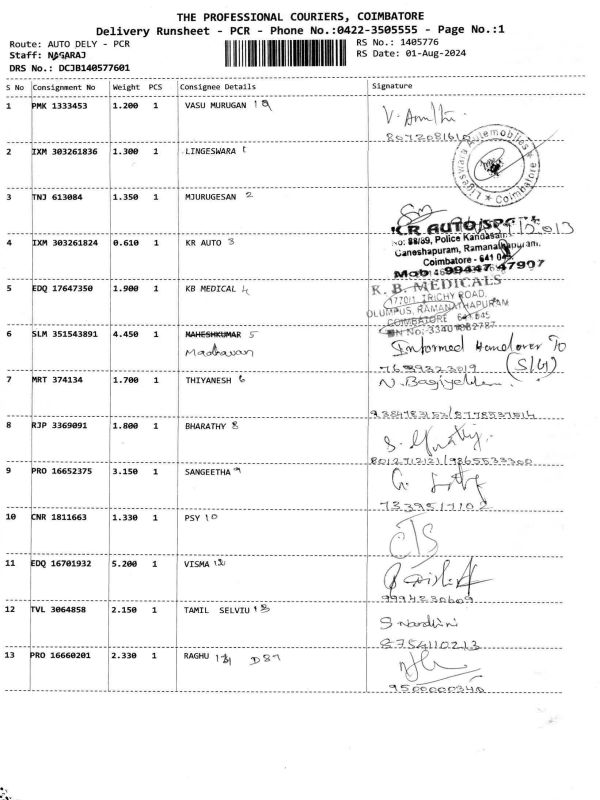 THE PROFESSIONAL COURIERS, COIMBATORE
Delivery Runsheet - PCR - Phone No.:0422-3505555 - Page No.:1
Route: AUTO DELY - PCR RS No.: 1405776
Staff: NAGARAJ RS Date: 01-Aug-2024
DRS No.: DCJB140577601
S No Consignment No Weight PCS Consignee Details Signature
1 PMK 1333453 1.200 1 VASU MURUGAN
Ligeswara Automobiles * Coimbatore *
2 IXM 303261836 1.300 1 LINGESWARA
3 TNJ 613084 1.350 1 MJURUGESAN 2
K.R AUTO
No: 88/89, Police Kandasamy
4 IXM 303261824 0.610 1 KR AUTO 3
Ganeshapuram, Ramanathapuram,
Coimbatore - 641 045
Mob 99447 47907
5 EDQ 17647350 1.900 1 KB MEDICAL 4
K. B. MEDICALS
1770/1, TRICHY ROAD,
OLUMPUS, RAMANATHAPURAM
COIMBATORE 641 045
6 SLM 351543891 4.450 1 MAHESHKUMAR 5
Madhavan
Informed Handover To
7639323019
7 MRT 374134 1.700 1 THIYANESH 6
8 RJP 3369091 1.800 1 BHARATHY 8
8012712121/9865533300
9 PRO 16652375 3.150 1 SANGEETHA 9
7339517102
10 CNR 1811663 1.330 1 PSY 10
CTS
11 EDQ 16701932 5.200 1 VISMA
9994230609
12 TVL 3064858 2.150 1 TAMIL SELVIU
S Nandhini
8754110213
13 PRO 16660201 2.330 1 RAGHU
9500000340